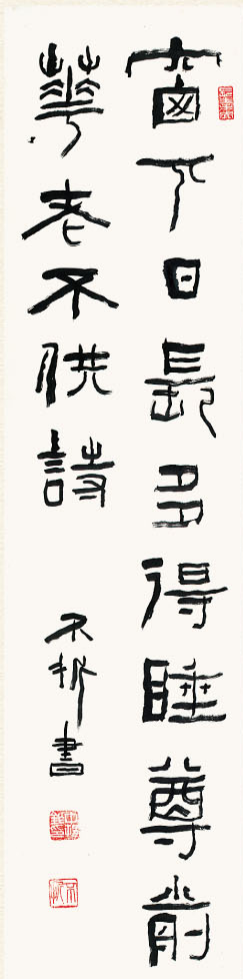 窗下日長多得睡尊前
華老不供詩
不折書